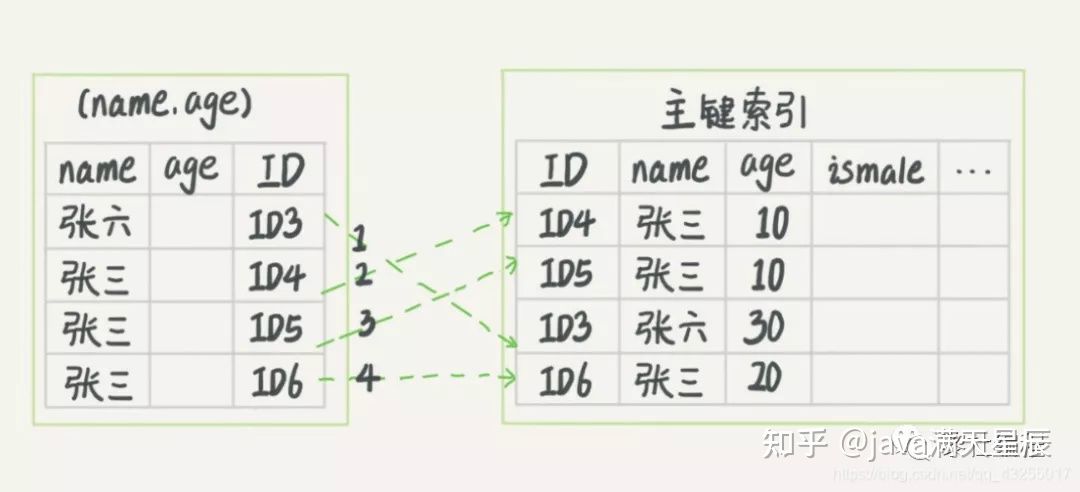 (name.age)
主键索引
name age ID
张六 ID3
张三 ID4
张三 ID5
张三 ID6
1
2
3
4
ID name age ismale ...
ID4 张三 10
ID5 张三 10
ID3 张六 30
ID6 张三 20
知乎 @java满天星辰
https://blog.csdn.net/qq_43255017